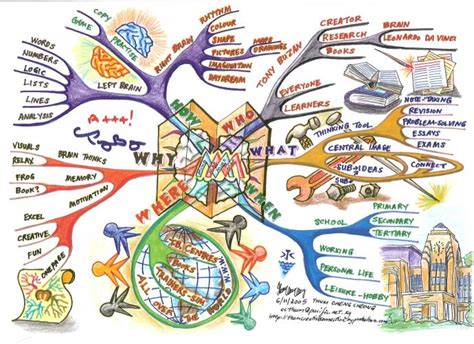 GAME
COPY
PRACTICE
WORDS
NUMBERS
LOGIC
LISTS
LINES
ANALYSIS
LEFT BRAIN
RIGHT BRAIN
RHYTHM
COLOUR
SHAPE
PICTURES
IMAGINATION
DAYDREAM
MORE
DRAWINGS
HOW
A+++!
WHO
TONY BUZAN
CREATOR
RESEARCH
BOOKS
BRAIN
LEONARDO DA VINCI
EVERYONE
LEARNERS
WHAT
THINKING TOOL
CENTRAL IMAGE
SUB-IDEAS
CONNECT
NOTE-TAKING
REVISION
PROBLEM-SOLVING
ESSAYS
EXAMS
WHY
VISUALS
RELAX
BRAIN THINKS
FROG
BOOK?
MEMORY
MOTIVATION
EXCEL
CREATIVE
FUN
WHERE
BOOKS
ALL OVER THE WORLD
WHEN
SCHOOL
PRIMARY
SECONDARY
TERTIARY
WORKING
PERSONAL LIFE
LEISURE-HOBBY
6/11/2005
THUM CHENG CHEONG